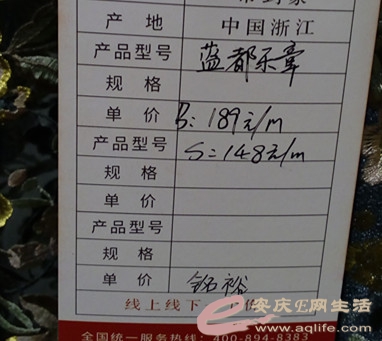 产地 中国浙江
产品型号 蓝都乐章
规格
单价 B:189元/m
产品型号 S=148元/m
规格
单价
产品型号
规格
单价 铭裕
线上线下
全国统一服务热线:400-894-8383
安庆E网生活
www.aqlife.com